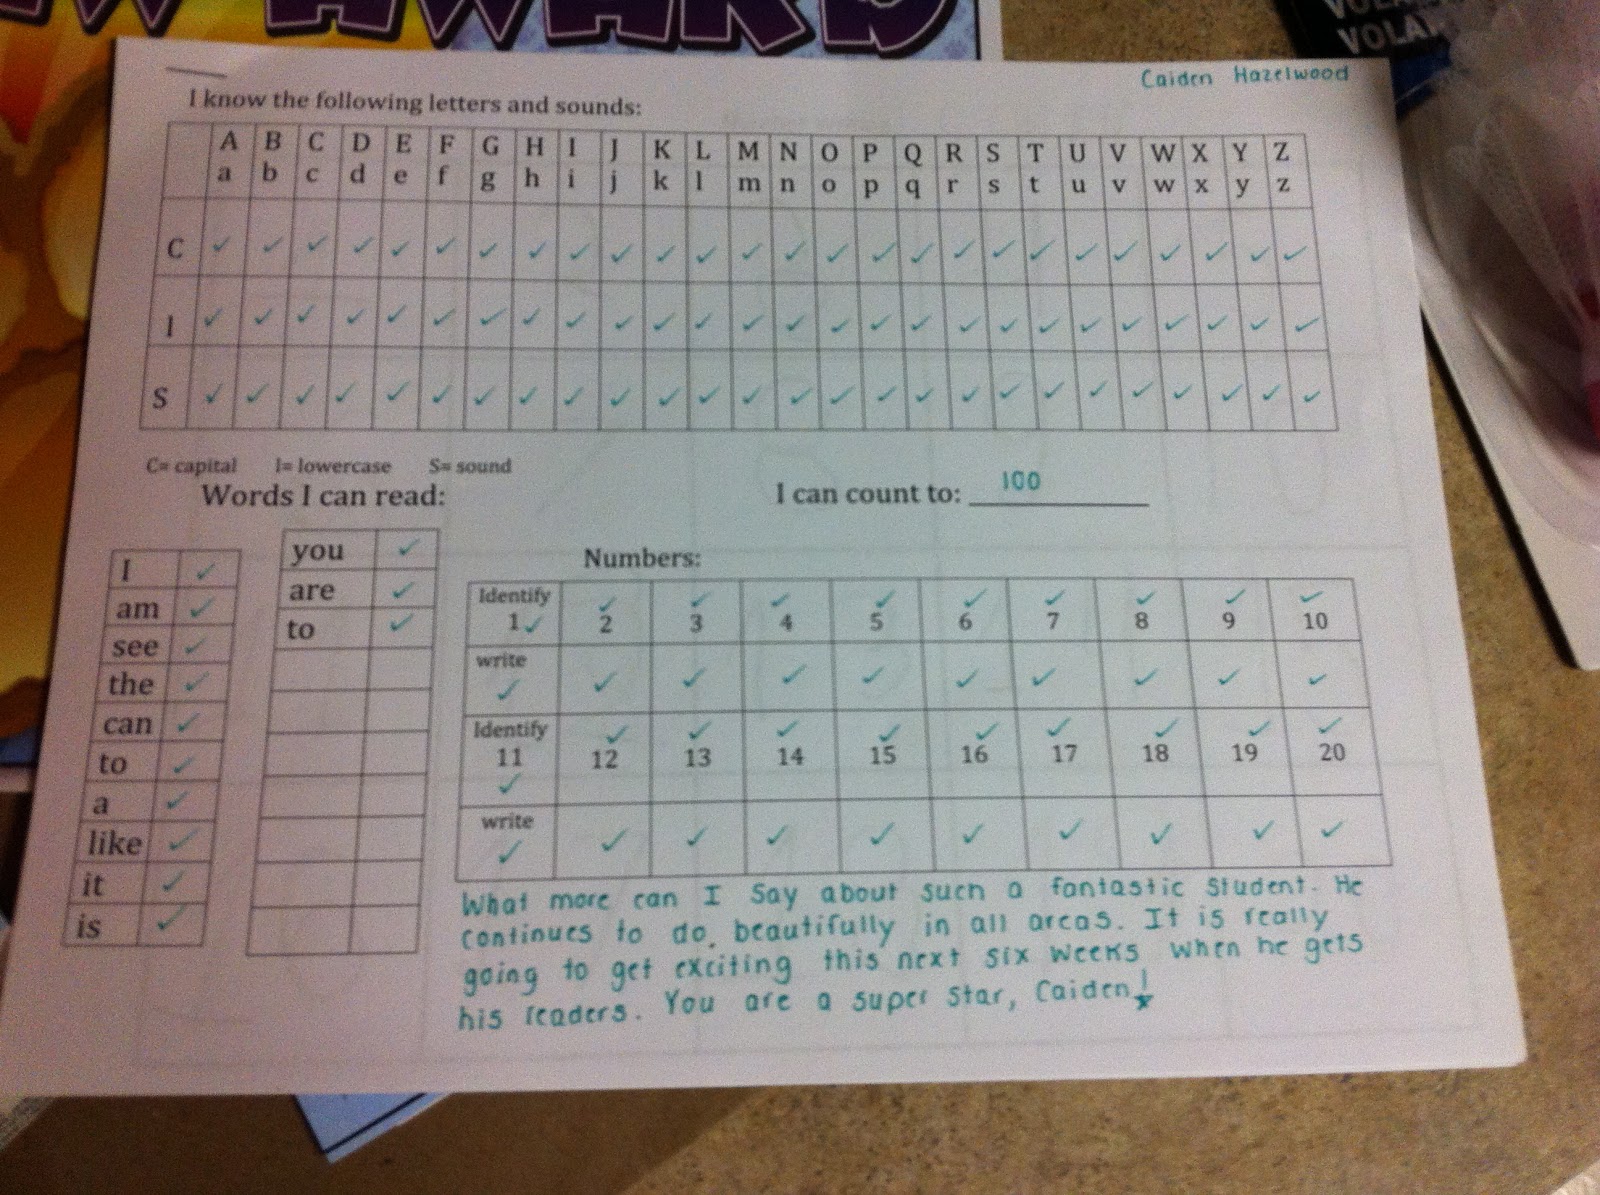 AWARD
VOLAN
Caiden Hazelwood
I know the following letters and sounds:
A B C D E F G H I J K L M N O P Q R S T U V W X Y Z
a b c d e f g h i j k l m n o p q r s t u v w x y z
C ✓ ✓ ✓ ✓ ✓ ✓ ✓ ✓ ✓ ✓ ✓ ✓ ✓ ✓ ✓ ✓ ✓ ✓ ✓ ✓ ✓ ✓ ✓ ✓ ✓ ✓
l ✓ ✓ ✓ ✓ ✓ ✓ ✓ ✓ ✓ ✓ ✓ ✓ ✓ ✓ ✓ ✓ ✓ ✓ ✓ ✓ ✓ ✓ ✓ ✓ ✓ ✓
S ✓ ✓ ✓ ✓ ✓ ✓ ✓ ✓ ✓ ✓ ✓ ✓ ✓ ✓ ✓ ✓ ✓ ✓ ✓ ✓ ✓ ✓ ✓ ✓ ✓ ✓
C= capital l= lowercase S= sound
Words I can read:
I ✓
am ✓
see ✓
the ✓
can ✓
to ✓
a ✓
like ✓
it ✓
is ✓
you ✓
are ✓
to ✓
I can count to: 100
Numbers:
Identify ✓ ✓ ✓ ✓ ✓ ✓ ✓ ✓ ✓
1 ✓ 2 3 4 5 6 7 8 9 10
write
✓ ✓ ✓ ✓ ✓ ✓ ✓ ✓ ✓ ✓
Identify ✓ ✓ ✓ ✓ ✓ ✓ ✓ ✓ ✓
11 12 13 14 15 16 17 18 19 20
✓
write
✓ ✓ ✓ ✓ ✓ ✓ ✓ ✓ ✓ ✓
What more can I say about such a fantastic student. He
continues to do beautifully in all areas. It is really
going to get exciting this next six weeks when he gets
his readers. You are a super star, Caiden!